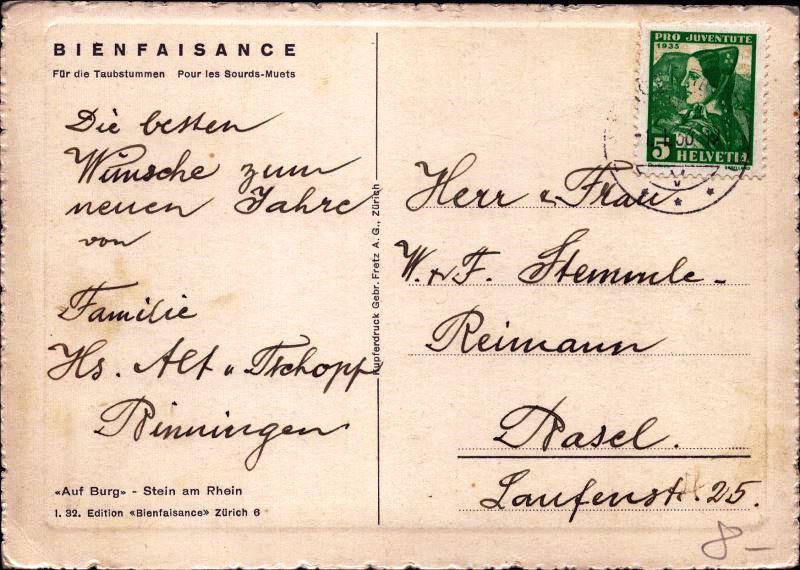 BIENFAISANCE
Für die Taubstummen Pour les Sourds-Muets
Die besten
Wünsche zum
neuen Jahre
von
Familie
Hs. Alt u Tschopp
Binningen
«Auf Burg» - Stein am Rhein
1. 32. Edition «Bienfaisance» Zürich 6
Kupferdruck Gebr. Fretz A. G., Zürich
PRO JUVENTUTE
1935
5 HELVETIA
Herr u Frau
W. u F. Stemmle-
Reimann
Basel.
Laufenstr. 25.
8.-